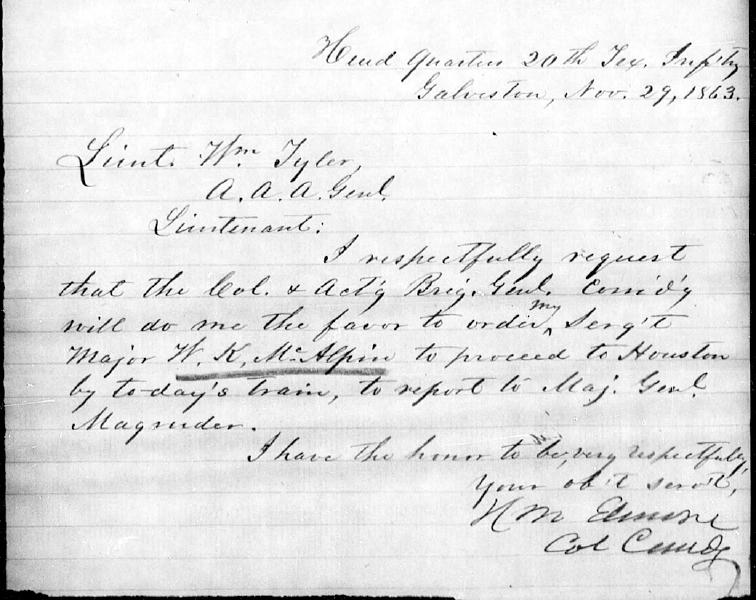 Head Quarters 20th Tex. Inf'try
Galveston, Nov. 29, 1863.
Lieut. Wm Tyler,
A. A. A. Genl.
Lieutenant:
I respectfully request
that the Col. & Act'g Brig. Genl. Com'd'g
will do me the favor to order my Serg't
Major W. K. McAlpin to proceed to Houston
by to-day's train, to report to Maj. Genl.
Magruder.
I have the honor to be, very respectfully,
Your ob't serv't,
H M Elmore
Col Comdg